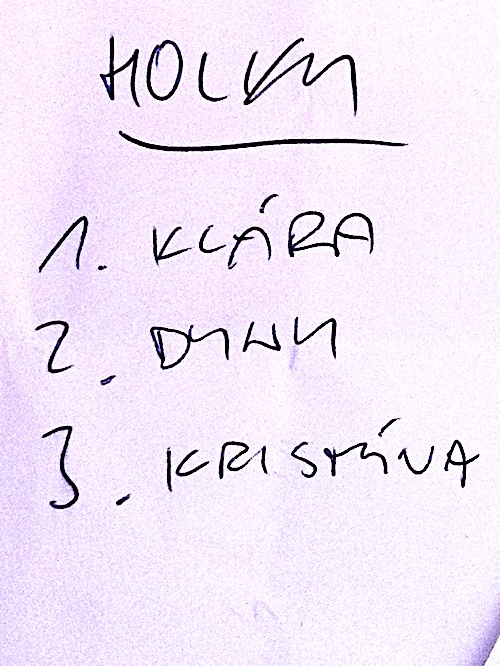 HOLKY
1. KLÁRA
2. DYWY
3. KRISTÝNA